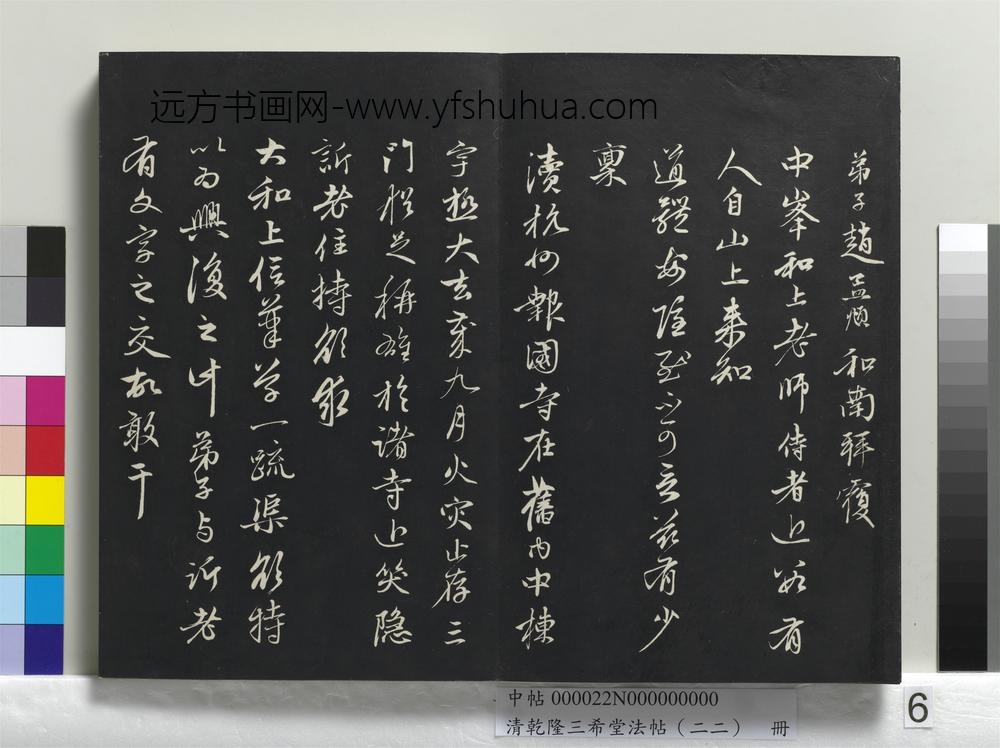 远方书画网-www.yfshuhua.com
弟子趙孟頫和南拜覆
中峯和上老師侍者近有
人自山上来知
道體安隱慰不可言兹有少
稟
瀆杭州報國寺在舊內中棟
宇極大去歲九月火灾止存三
門足稱雄於諸寺近笑隐
訢老住持欲求
大和上信筆草一疏渠欲持
以為興復之計弟子与訢老
有文字之交故敢干
中帖 000022N000000000
清乾隆三希堂法帖（二二） 冊
6